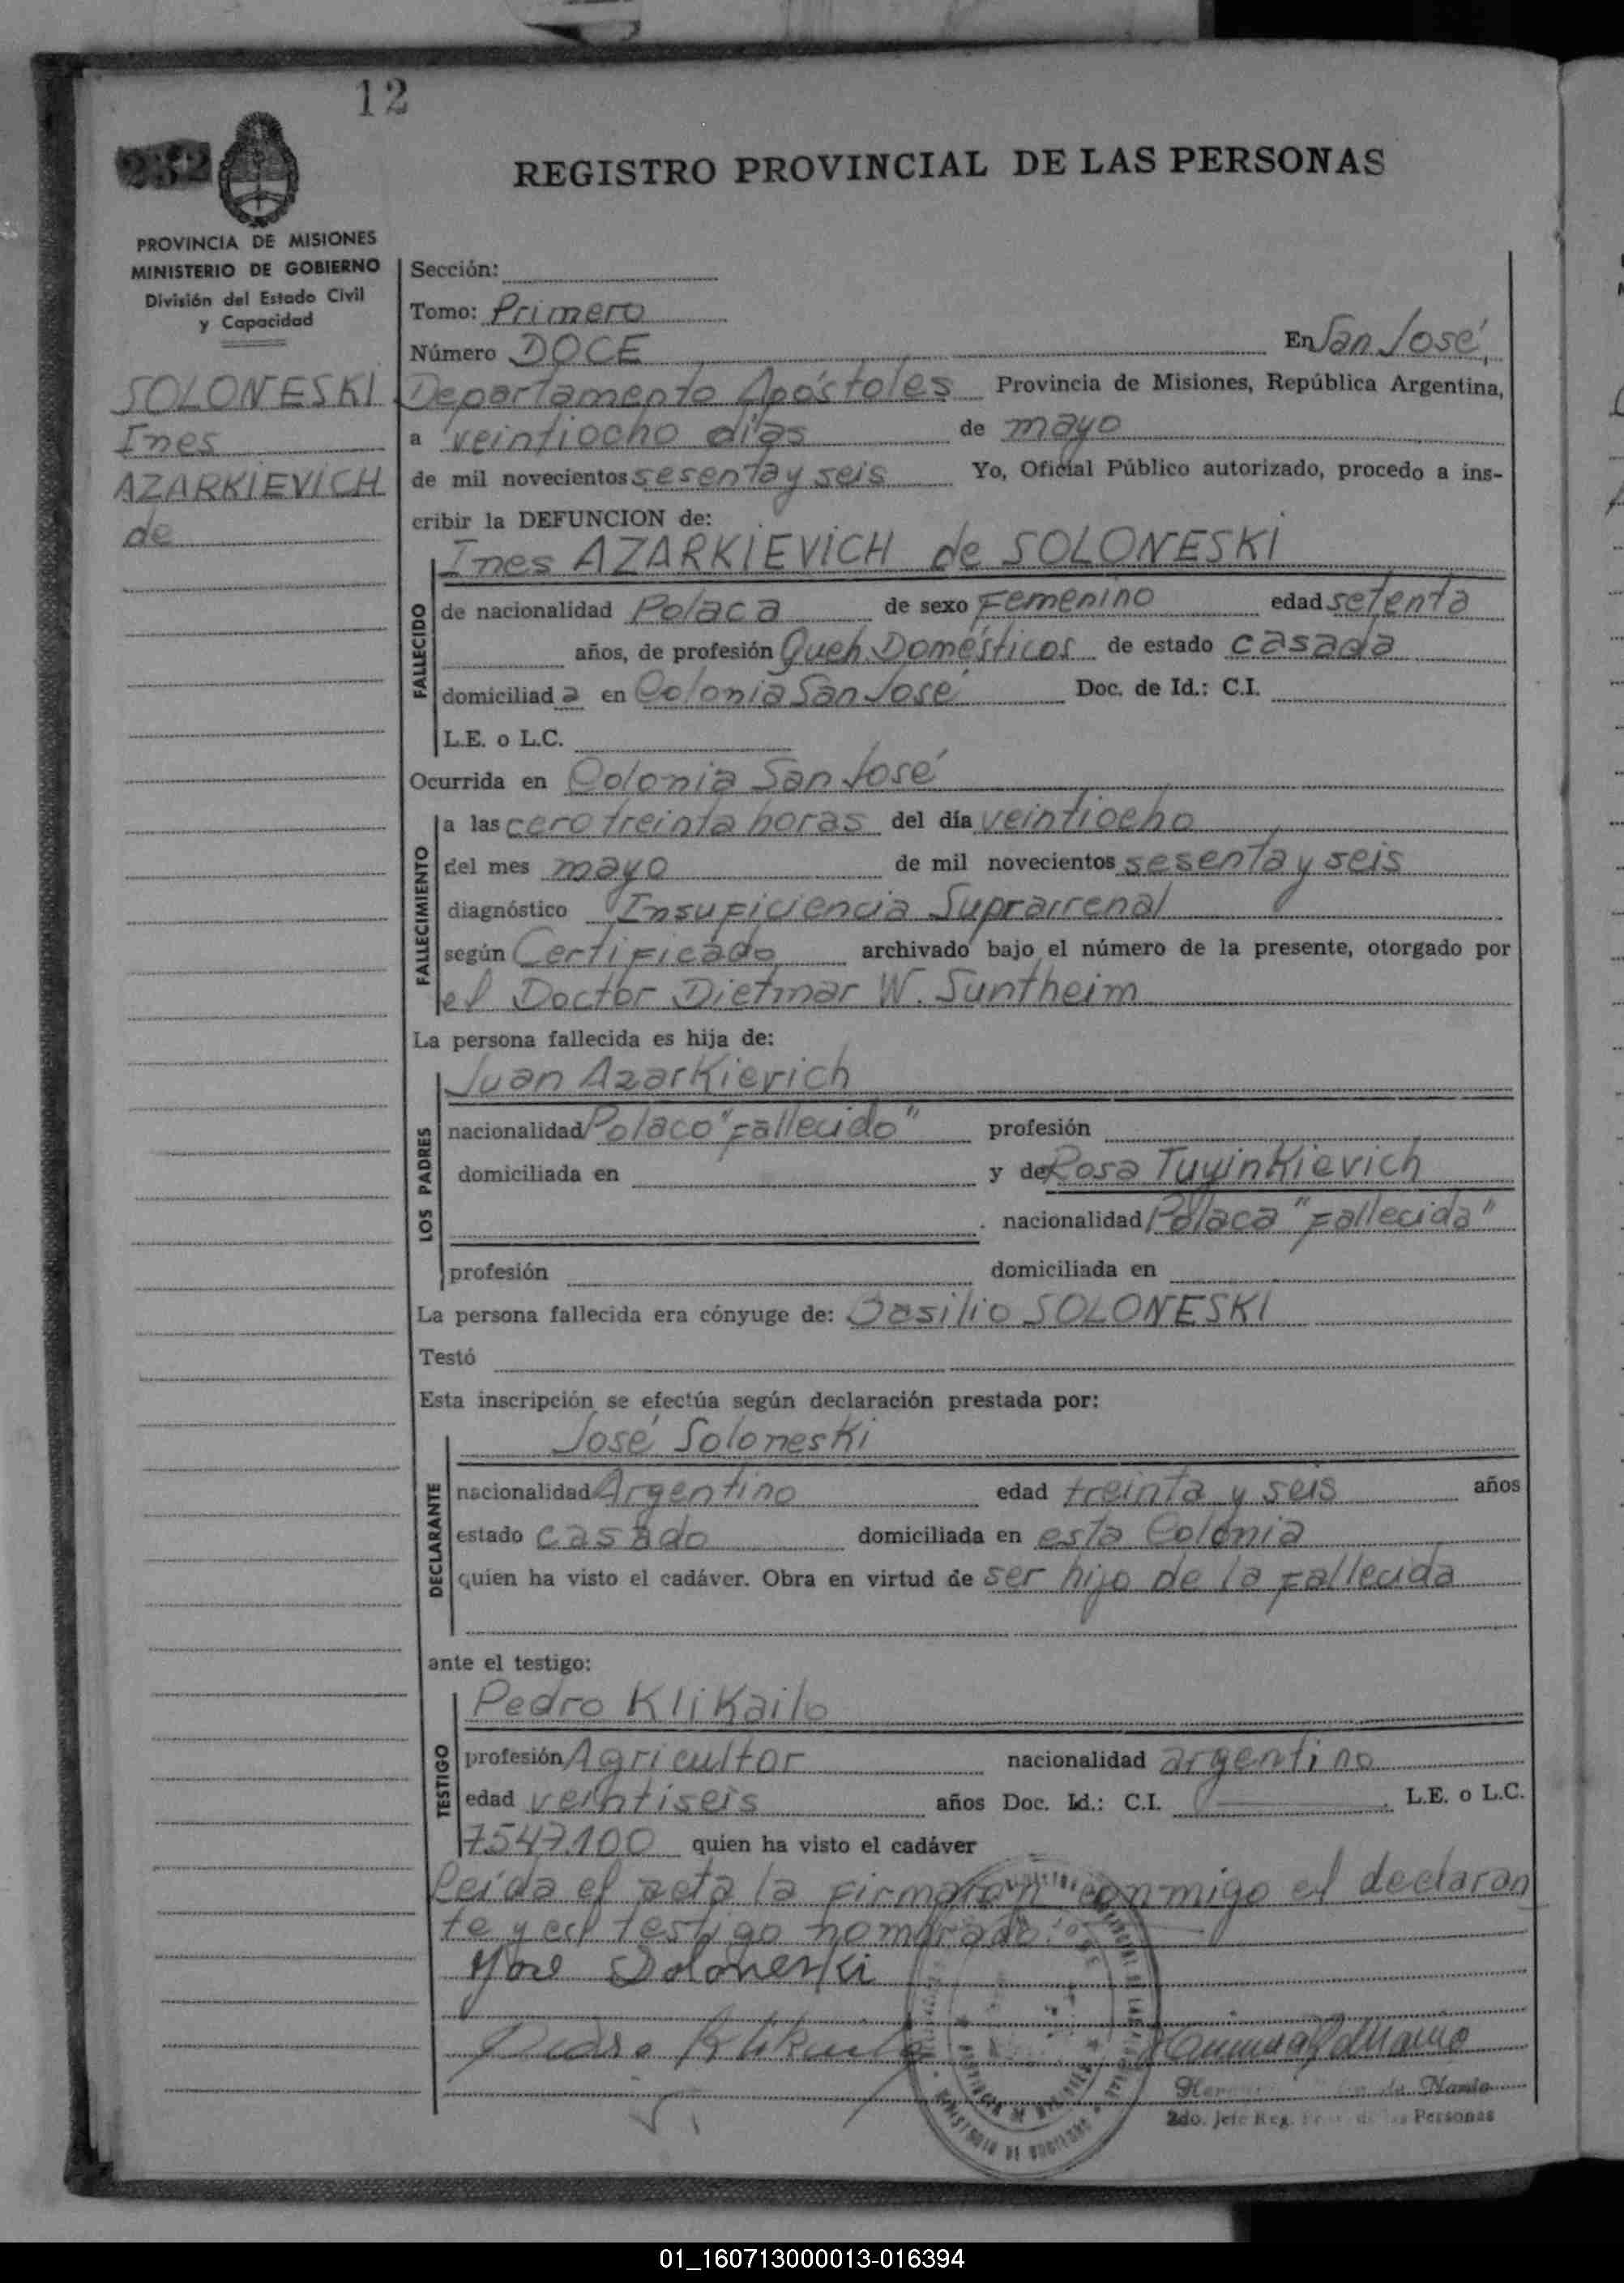 12
232
REGISTRO PROVINCIAL DE LAS PERSONAS
PROVINCIA DE MISIONES
MINISTERIO DE GOBIERNO
División del Estado Civil
y Capacidad
SOLONESKI
Ines
AZARKIEVICH
de
Sección:
Tomo: Primero
Número DOCE En San José,
Departamento Apóstoles Provincia de Misiones, República Argentina,
a veintiocho días de mayo
de mil novecientos sesenta y seis Yo, Oficial Público autorizado, procedo a ins-
cribir la DEFUNCION de:
Ines AZARKIEVICH de SOLONESKI
FALLECIDO
de nacionalidad Polaca de sexo Femenino edad setenta
años, de profesión Queh. Domésticos de estado casada
domiciliad a en Colonia San José Doc. de Id.: C.I.
L.E. o L.C.
Ocurrida en Colonia San José
FALLECIMIENTO
a las cero treinta horas del día veintiocho
del mes mayo de mil novecientos sesenta y seis
diagnóstico Insuficiencia Suprarrenal
según Certificado archivado bajo el número de la presente, otorgado por
el Doctor Dietmar W. Suntheim
La persona fallecida es hija de:
LOS PADRES
Juan Azarkievich
nacionalidad Polaco "Fallecido" profesión
domiciliada en y de Rosa Tuyinkievich
. nacionalidad Polaca "Fallecida"
profesión domiciliada en
La persona fallecida era cónyuge de: Basilio SOLONESKI
Testó
Esta inscripción se efectúa según declaración prestada por:
DECLARANTE
José Soloneski
nacionalidad Argentino edad treinta y seis años
estado casado domiciliada en esta Colonia
quien ha visto el cadáver. Obra en virtud de ser hijo de la fallecida
ante el testigo:
TESTIGO
Pedro Klikailo
profesión Agricultor nacionalidad argentino
edad veintiseis años Doc. Id.: C.I. L.E. o L.C.
7.547.100 quien ha visto el cadáver
Leída el acta la firmaron conmigo el declaran
te y el testigo nombrado.
José Soloneski
Pedro Klikailo
2do. Jefe Reg. de las Personas
01_160713000013-016394